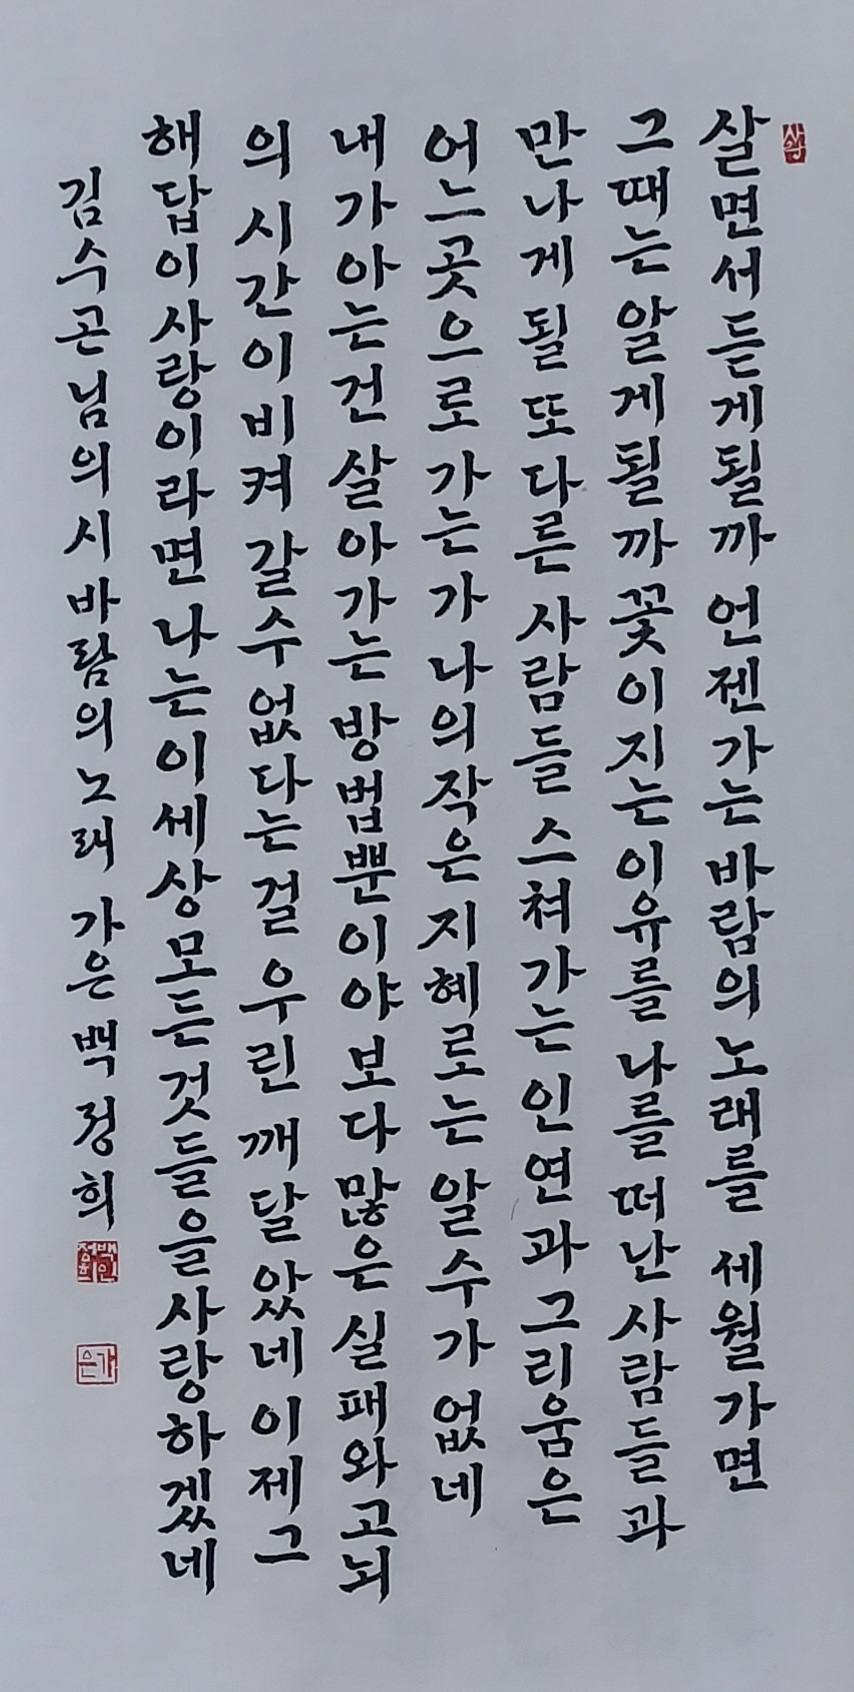 살면서 듣게 될까 언젠가는 바람의 노래를 세월 가면
그때는 알게 될까 꽃이 지는 이유를 나를 떠난 사람들과
만나게 될 또 다른 사람들 스쳐가는 인연과 그리움은
어느 곳으로 가는가 나의 작은 지혜로는 알 수가 없네
내가 아는 건 살아가는 방법뿐이야 보다 많은 실패와 고뇌
의 시간이 비켜 갈 수 없다는 걸 우린 깨달았네 이제 그
해답이 사랑이라면 나는 이 세상 모든 것들을 사랑하겠네
김수곤님의 시 바람의 노래 가은 백정희
백정희인
가은